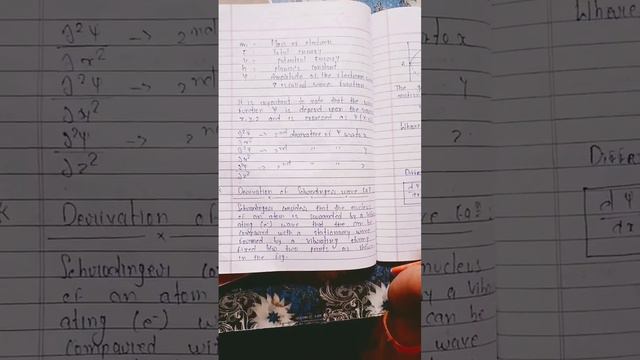 m = Mass of electron
E = Total energy
V = Potential energy
h = Planck's constant
Ψ = Amplitude of the electron wave
Ψ is called wave function
It is important to note that the wave
function Ψ is depend upon the
x, y, z and is expressed as Ψ (x,
∂²Ψ → 2nd derivative of Ψ w.r.to x
∂x²
∂²Ψ → 2nd " " " y
∂y²
∂²Ψ → 2nd " " " z
∂z²
Derivation of Schrodinger wave Eq:
Schrodinger considers that the nucleus
of an atom is surrounded by a vibr
ating (e⁻) wave that the can be
compared with a stationary wave
formed by a vibrating string
fixed b/w two points as shown
in the fig.
∂²Ψ → 2nd
∂x²
∂²Ψ → 2nd
∂²Ψ → 2nd
∂z²
Derivation of
Schrodinger co
of an atom
ating (e⁻) w
compared wi
to x
y
z
nucleus
y a vib
can be
wave
Where
The
Where
Differ
dΨ
dx
Where
Differ
dΨ
dx